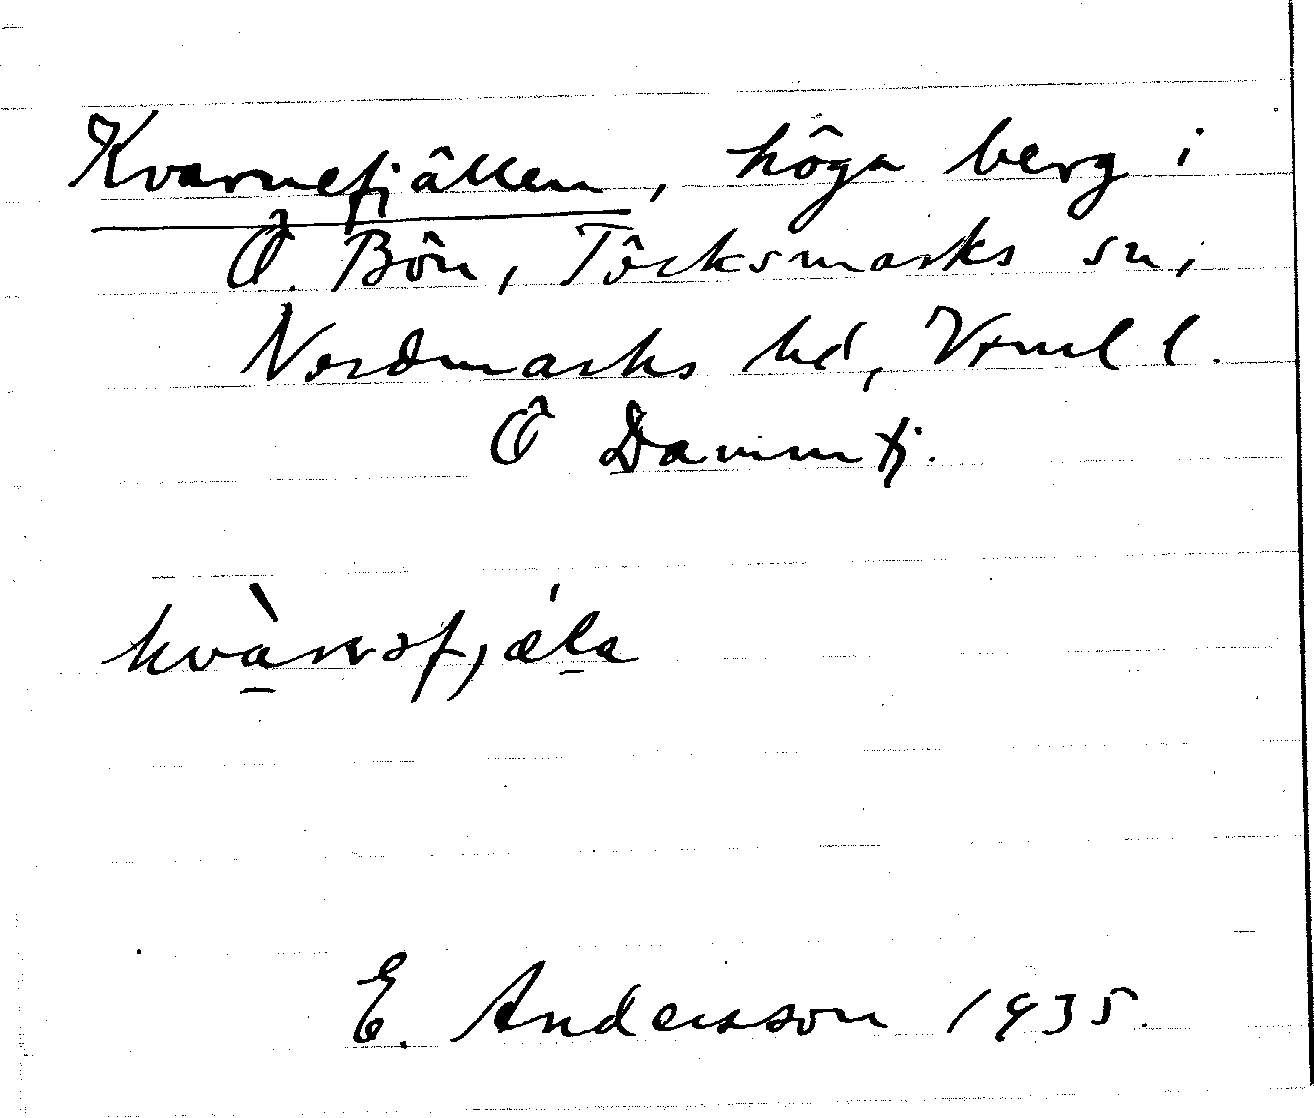 Kvarnefjällen, höga berg i
Ö. Bön, Töcksmarks sn,
Nordmarks hd, Vrml l.
Ö Dammtj.
kvànǝfjæ̀la
E. Andersson 1935.